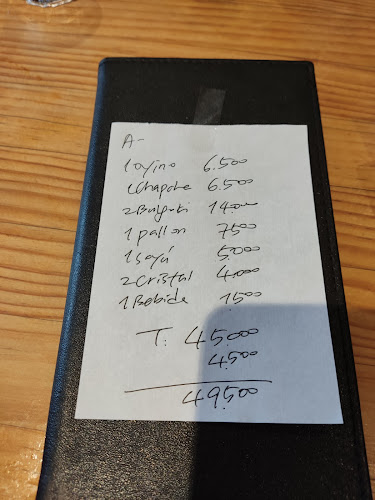 A-
1 ojino 6.500
1 Chapche 6.500
2 Bulgoki 14.000
1 pallon 7500
1 Soyú 5.000
2 Cristal 4.000
1 Bebida 1500
T: 45.000
4.500
49.500